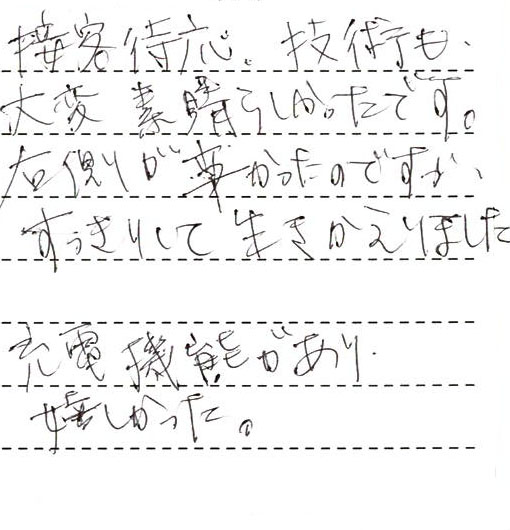 接客待応。技術も、
大変素晴らしかったです。
右側が辛かったのですが、
すっきりして生きかえりました
充電機能があり、
嬉しかった。